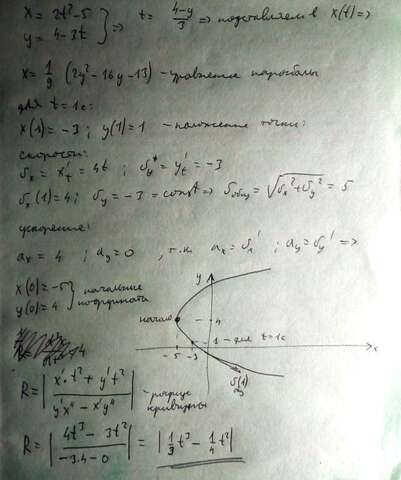 x = 2t² - 5
y = 4 - 3t } => t = (4-y)/3 => подставляем в x(t) =>
x = 1/9 (2y² - 16y - 13) - уравнение параболы
для t = 1с:
x(1) = -3 ; y(1) = 1 - положение точки:
скорости:
υx = x't = 4t ; υy = y't = -3
υx(1) = 4 ; υy = -3 = const => υобщ = √(υx² + υy²) = 5
ускорение:
ax = 4 ; ay = 0 , т.к. ax = υx' ; ay = υy' =>
x(0) = -5
y(0) = 4 } начальные координата
y
начало
4
1 - для t = 1с
-5 -3
x
υ(1)
R = | (x'·t² + y't²) / (y'x'' - x'y'') | - радиус кривизны
R = | (4t³ - 3t²) / (-3·4 - 0) | = | 1/3 t³ - 1/4 t² |